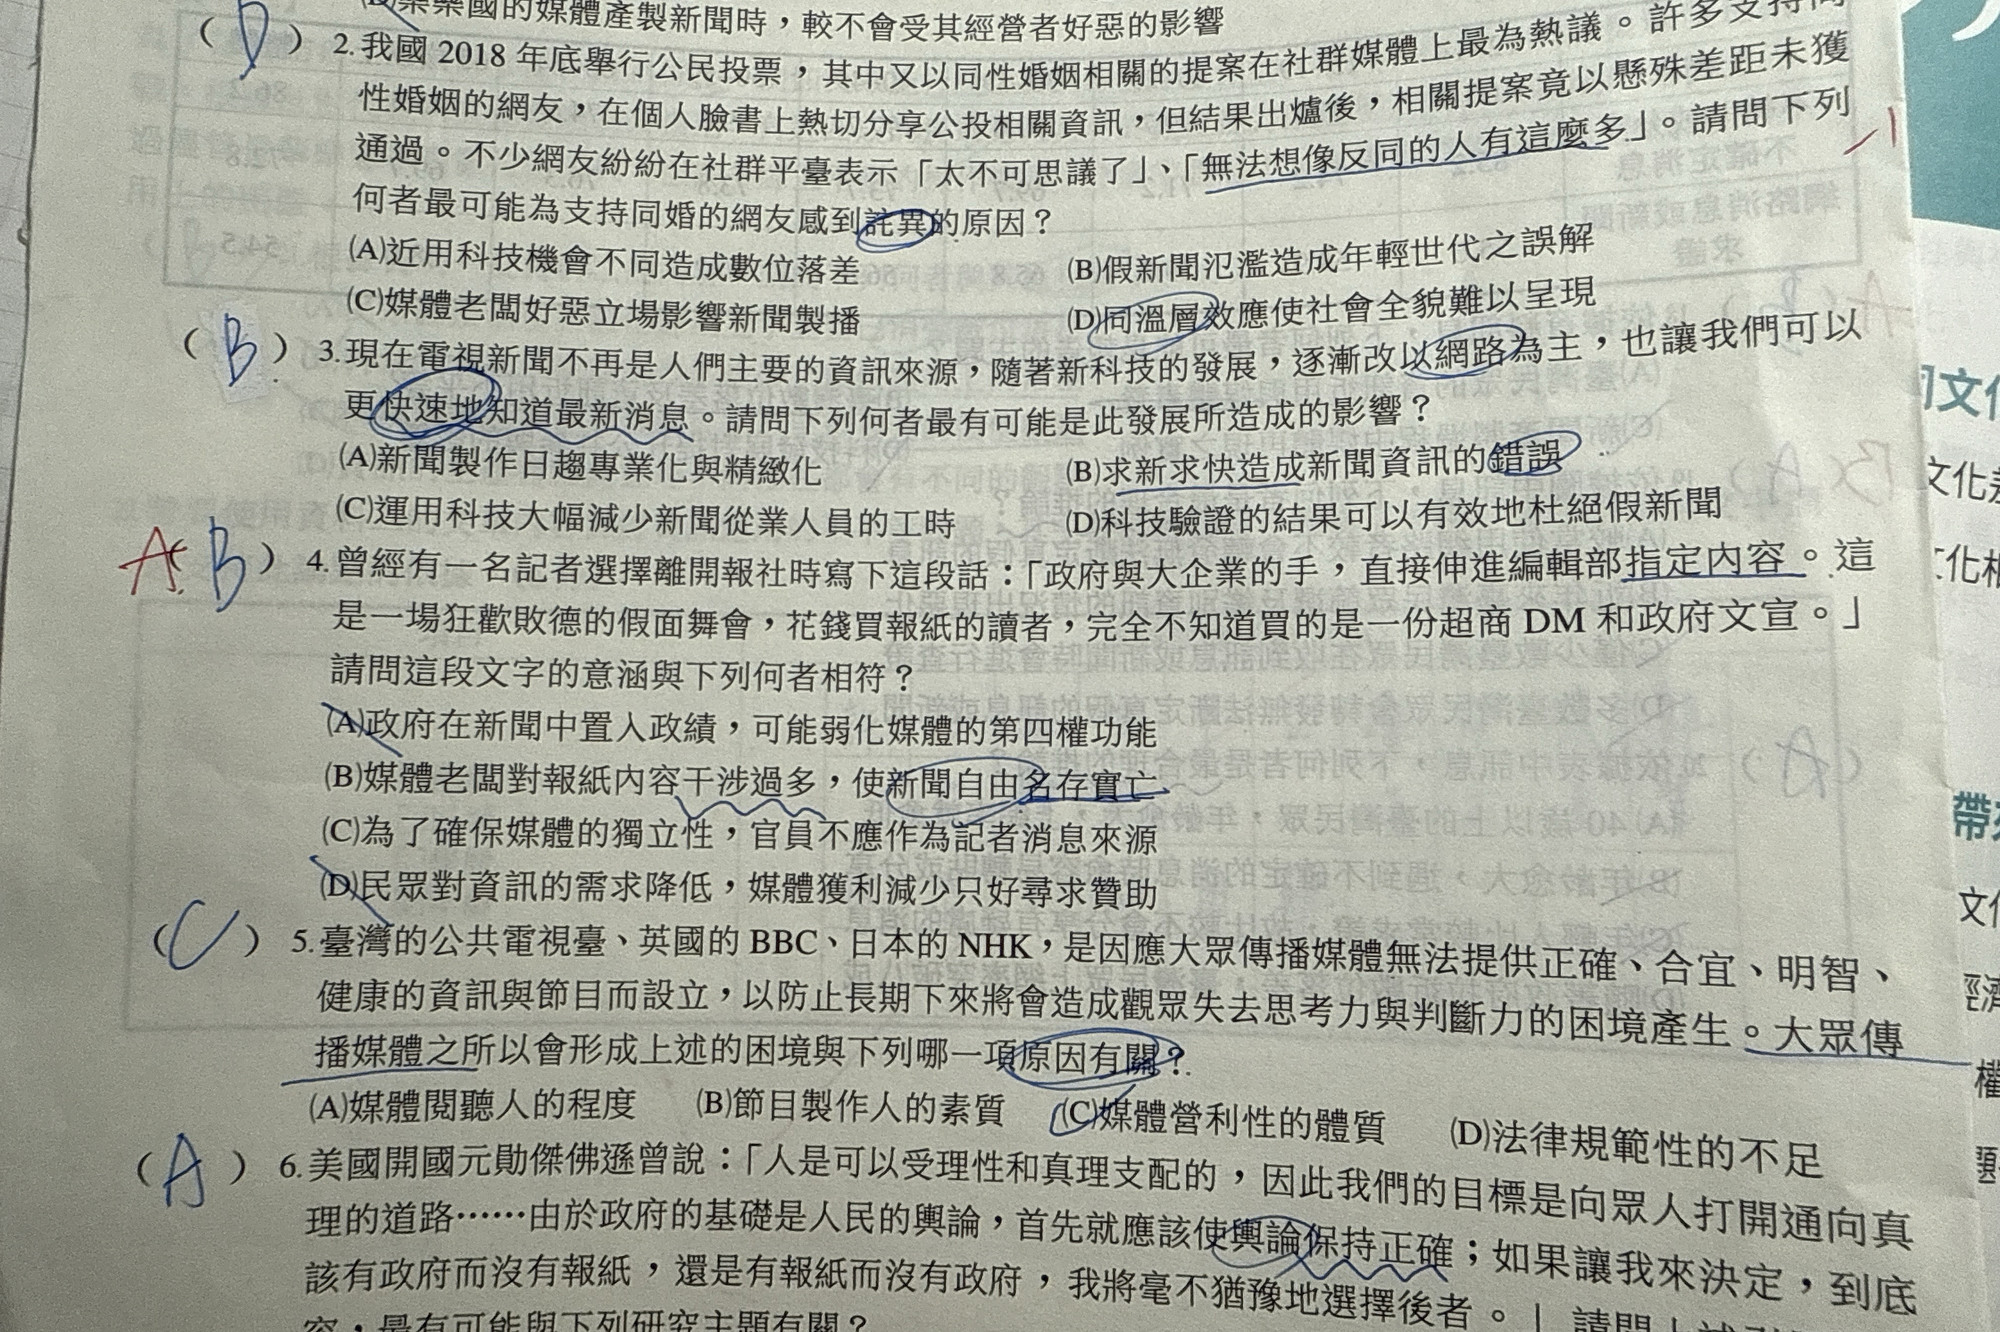 國的媒體產製新聞時，較不會受其經營者好惡的影響
( D ) 2. 我國 2018 年底舉行公民投票，其中又以同性婚姻相關的提案在社群媒體上最為熱議。許多支持同
性婚姻的網友，在個人臉書上熱切分享公投相關資訊，但結果出爐後，相關提案竟以懸殊差距未獲
通過。不少網友紛紛在社群平臺表示「太不可思議了」、「無法想像反同的人有這麼多」。請問下列
何者最可能為支持同婚的網友感到詫異的原因？
(A)近用科技機會不同造成數位落差 (B)假新聞氾濫造成年輕世代之誤解
(C)媒體老闆好惡立場影響新聞製播 (D)同溫層效應使社會全貌難以呈現
( B ) 3. 現在電視新聞不再是人們主要的資訊來源，隨著新科技的發展，逐漸改以網路為主，也讓我們可以
更快速地知道最新消息。請問下列何者最有可能是此發展所造成的影響？
(A)新聞製作日趨專業化與精緻化 (B)求新求快造成新聞資訊的錯誤
(C)運用科技大幅減少新聞從業人員的工時 (D)科技驗證的結果可以有效地杜絕假新聞
A ( B ) 4. 曾經有一名記者選擇離開報社時寫下這段話：「政府與大企業的手，直接伸進編輯部指定內容。這
是一場狂歡敗德的假面舞會，花錢買報紙的讀者，完全不知道買的是一份超商 DM 和政府文宣。」
請問這段文字的意涵與下列何者相符？
(A)政府在新聞中置入政績，可能弱化媒體的第四權功能
(B)媒體老闆對報紙內容干涉過多，使新聞自由名存實亡
(C)為了確保媒體的獨立性，官員不應作為記者消息來源
(D)民眾對資訊的需求降低，媒體獲利減少只好尋求贊助
( C ) 5. 臺灣的公共電視臺、英國的 BBC、日本的 NHK，是因應大眾傳播媒體無法提供正確、合宜、明智、
健康的資訊與節目而設立，以防止長期下來將會造成觀眾失去思考力與判斷力的困境產生。大眾傳
播媒體之所以會形成上述的困境與下列哪一項原因有關？
(A)媒體閱聽人的程度 (B)節目製作人的素質 (C)媒體營利性的體質 (D)法律規範性的不足
( A ) 6. 美國開國元勛傑佛遜曾說：「人是可以受理性和真理支配的，因此我們的目標是向眾人打開通向真
理的道路……由於政府的基礎是人民的輿論，首先就應該使輿論保持正確；如果讓我來決定，到底
該有政府而沒有報紙，還是有報紙而沒有政府，我將毫不猶豫地選擇後者。」請問
容，最有可能與下列研究主題有關？